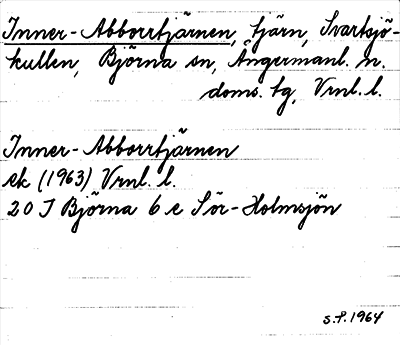 Inner-Abborrtjärnen, tjärn, Svartsjö-
kullen, Björna sn, Ångermanl. n.
doms. tg, Vrnl. l.
Inner-Abborrtjärnen
ek (1963) Vrnl. l.
20 I Björna 6 e Sör-Holmsjön
S.F. 1964